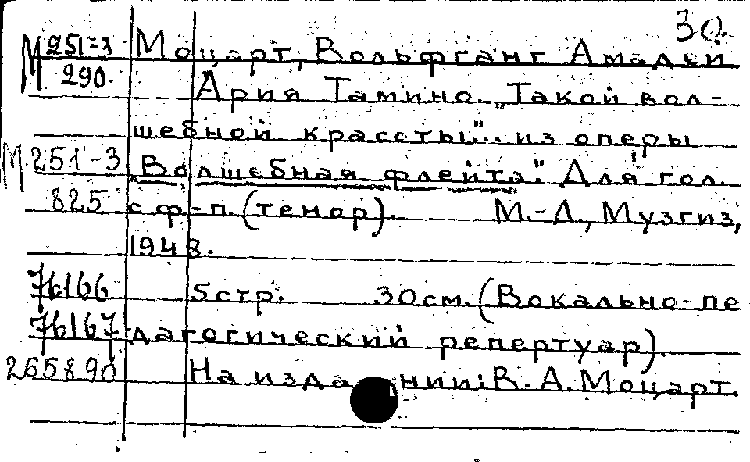 30.
М251-3 Моцарт, Вольфганг Амадей
290. Ария Тамино „Такой вол-
шебной красоты"... из оперы
М251-3 „Волшебная флейта". Для гол.
825 с ф-п. (тенор). М.-Л., Музгиз,
1948.
76166 5 стр. 30 см. (Вокально-пе
76167 дагогический репертуар).
265890 На издании: В. А. Моцарт.